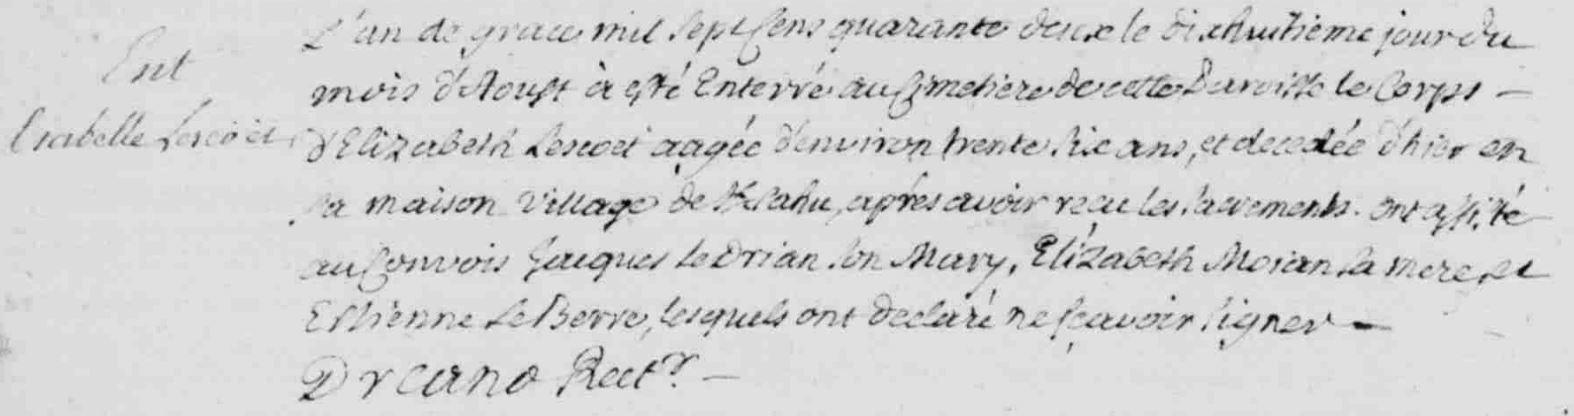 L'an de grace mil sept cens quarante deux le dixhuitieme jour du
Ent
mois d'Aoust à esté Enterré au Cimetiere de cette Paroisse le Corps –
Isabelle Lescoët
d'Elizabeth Lescoët aagée d'environ trente six ans, et decedée d'hier en
sa maison village de après avoir reçu les sacrements. ont assisté
au Convois Jacques Le Drian son Mary, Elizabeth Moian sa mere, et
Estienne Le Berre, lesquels ont declaré ne sçavoir signer –
Drcano Rect.r –